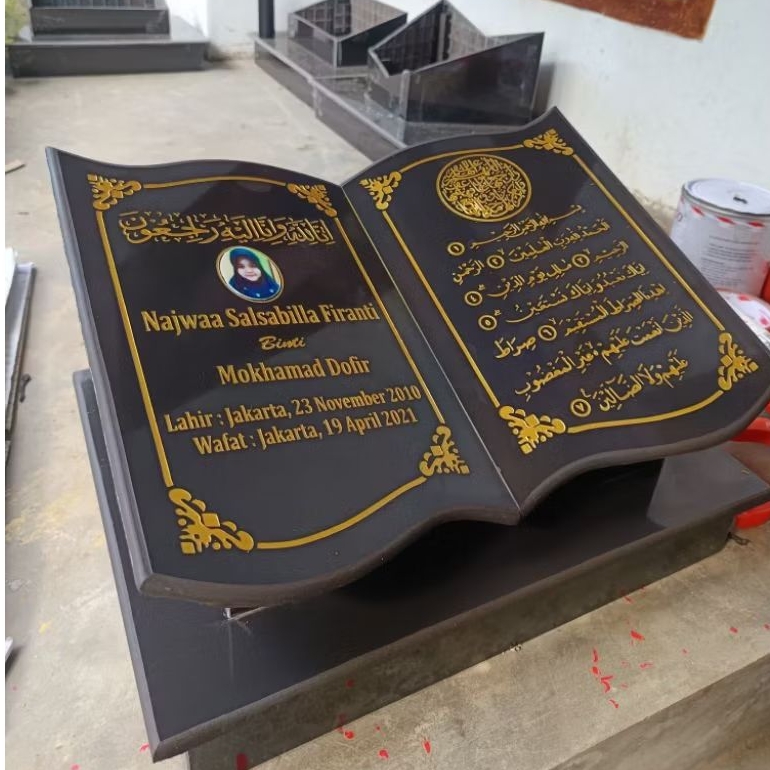 إنا لله وإنا إليه راجعون
Najwaa Salsabilla Firanti
Binti
Mokhamad Dofir
Lahir : Jakarta, 23 November 2010
Wafat : Jakarta, 19 April 2021
بسم الله الرحمن الرحيم ١
الحمد لله رب العلمين ٢ الرحمن
الرحيم ٣ ملك يوم الدين ٤
إياك نعبد وإياك نستعين ٥
اهدنا الصراط المستقيم ٦ صراط
الذين أنعمت عليهم غير المغضوب
عليهم ولا الضالين ٧